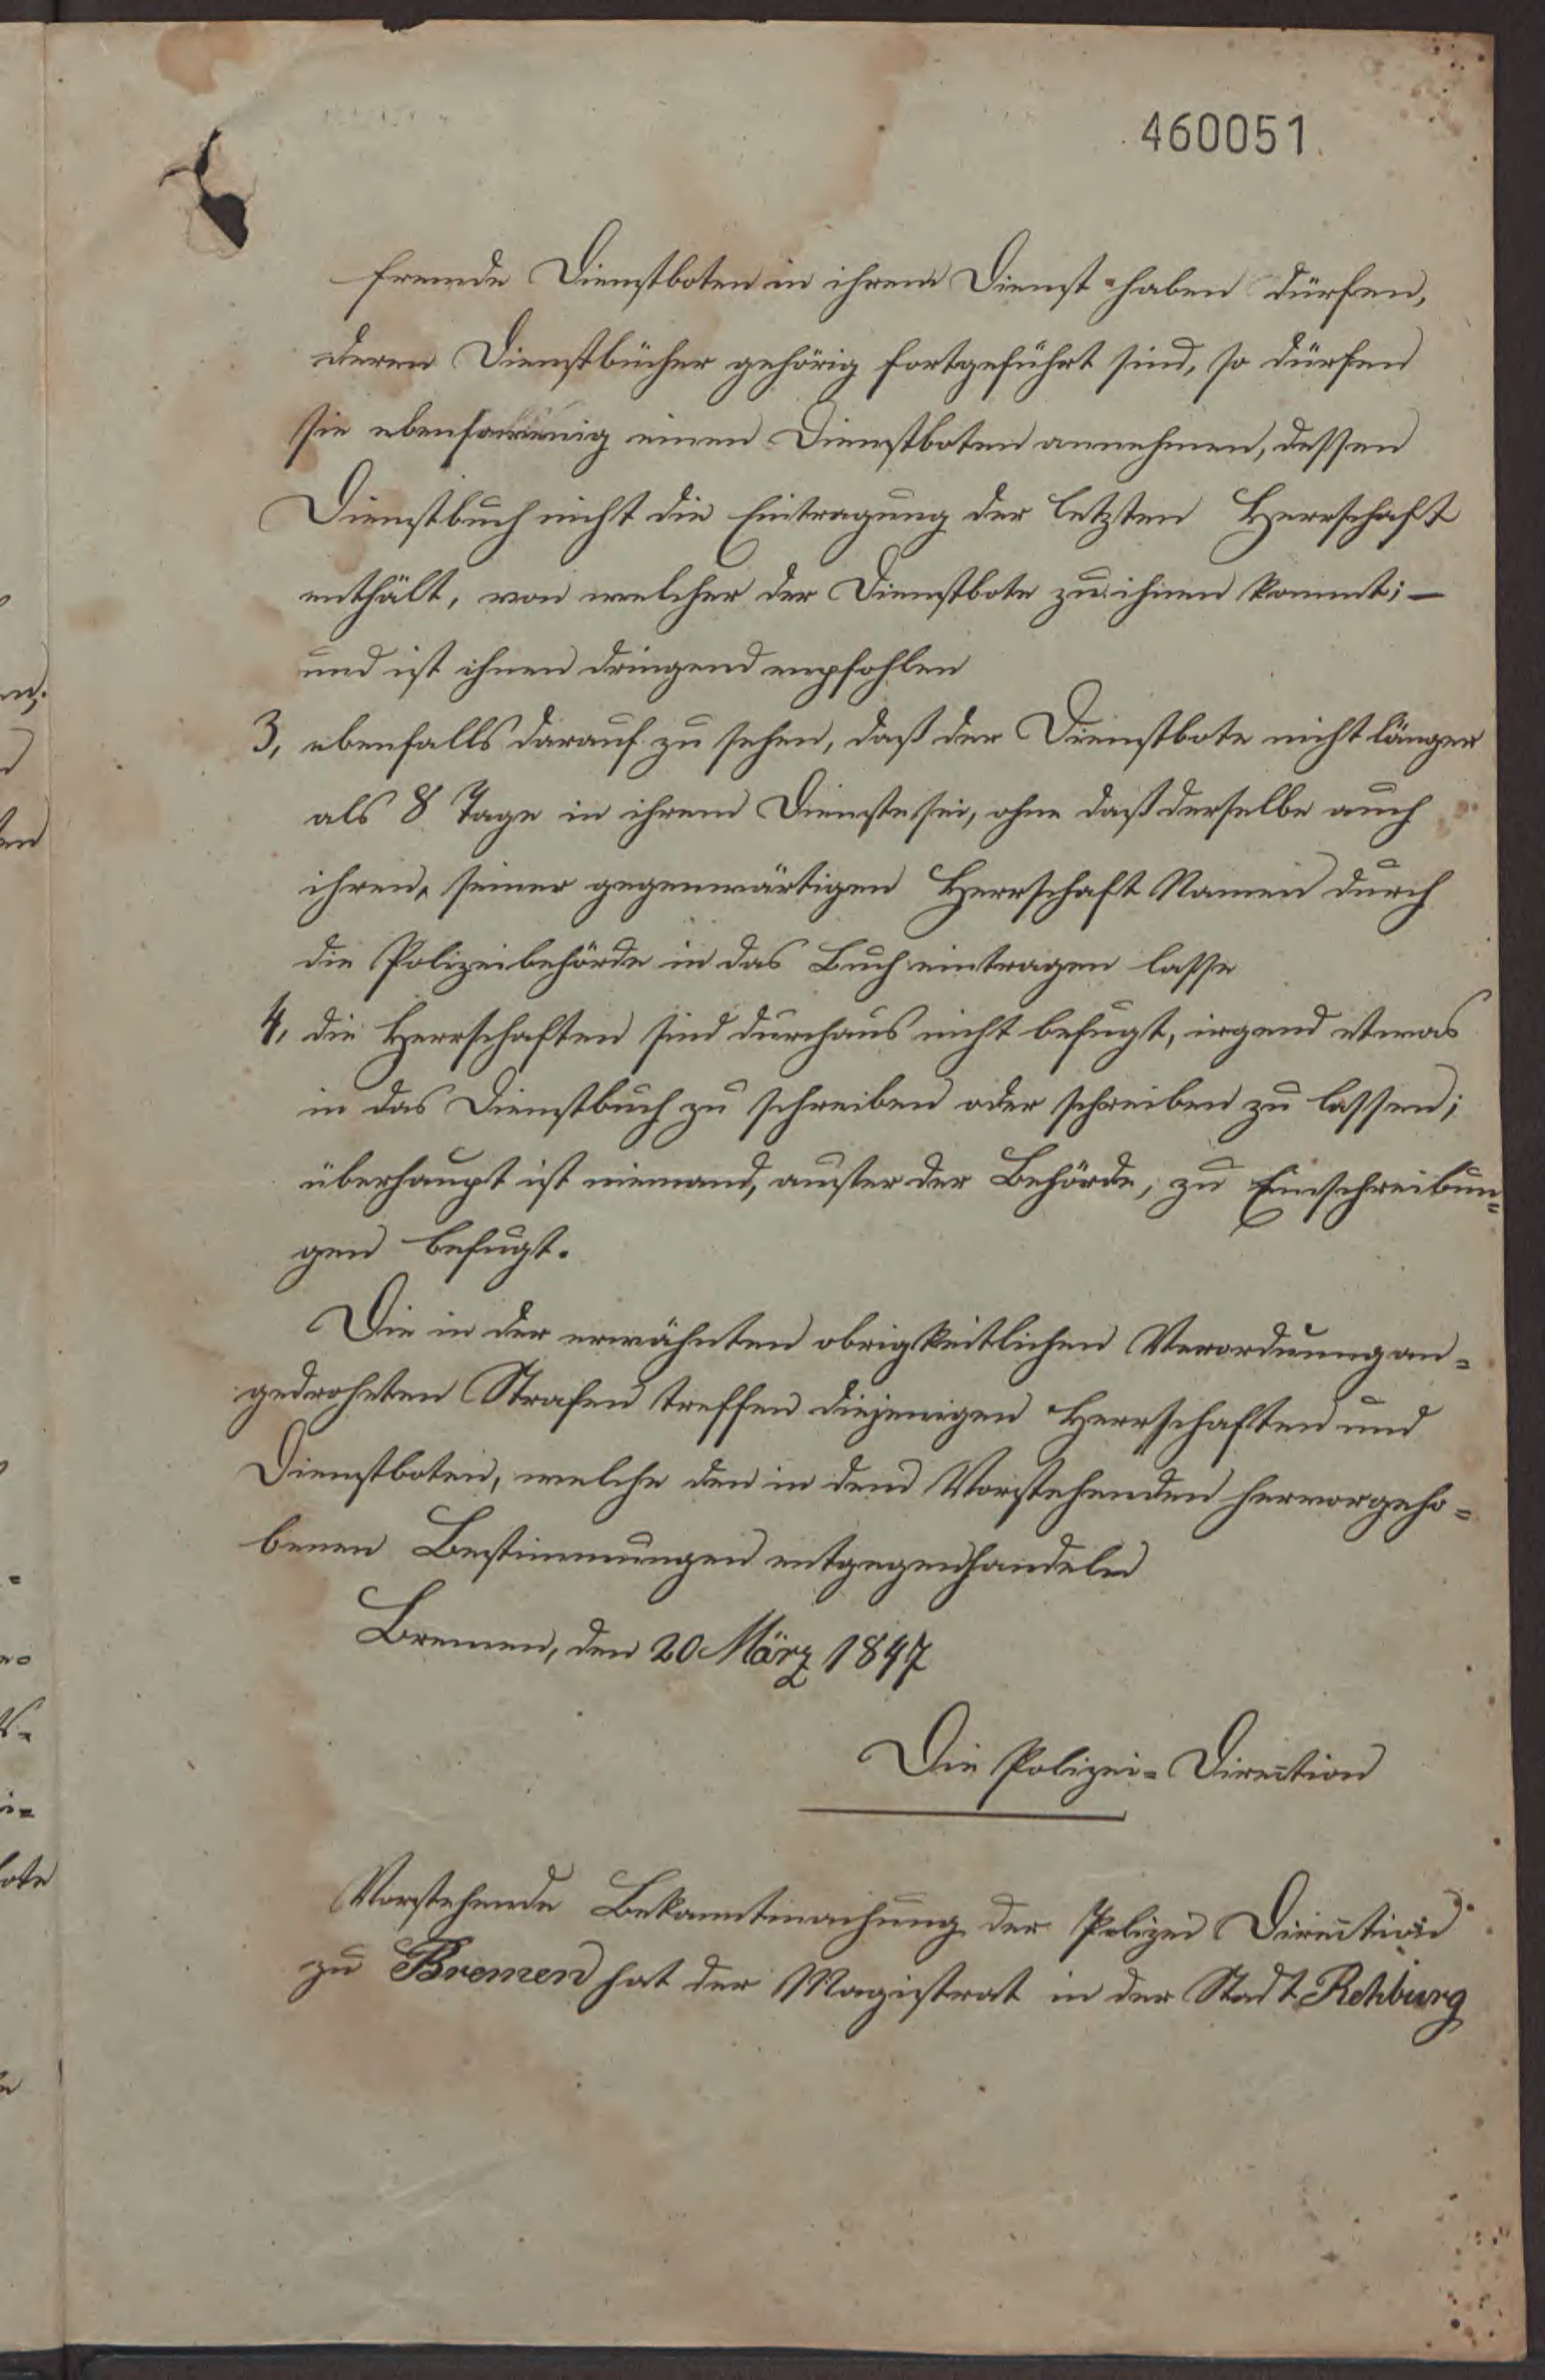 460051
fremde Dienstboten in ihrem Dienst haben dürfen,
deren Dienstbücher gehörig fortgeführt sind, so dürfen
sie ebensowenig einen Dienstboten annehmen, dessen
Dienstbuch nicht die Eintragung der letzten Herrschaft
enthält, von welcher der Dienstbote zu ihnen kommt; —
und ist ihnen dringend empfohlen
3, ebenfalls darauf zu sehen, daß der Dienstbote nicht länger
als 8 Tage in ihrem Dienste sei, ohne daß derselbe auch
ihren, seiner gegenwärtigen Herrschaft Namen durch
die Polizeibehörde in das Buch eintragen lasse
4, die Herrschaften sind durchaus nicht befugt, irgend etwas
in das Dienstbuch zu schreiben oder schreiben zu lassen;
überhaupt ist niemand, außer der Behörde, zu Einschreibun=
gen befugt.
Die in der erwähnten obrigkeitlichen Verordnung an=
gedrohten Strafen treffen diejenigen Herrschaften und
Dienstboten, welche den in dem Vorstehenden hervorgeho=
benen Bestimmungen entgegenhandeln
Bremen, den 20 März 1847
Die Polizei=Direction
Vorstehende Bekanntmachung der Polizei Direction
zu Bremen hat der Magistrat in der Stadt Rehburg